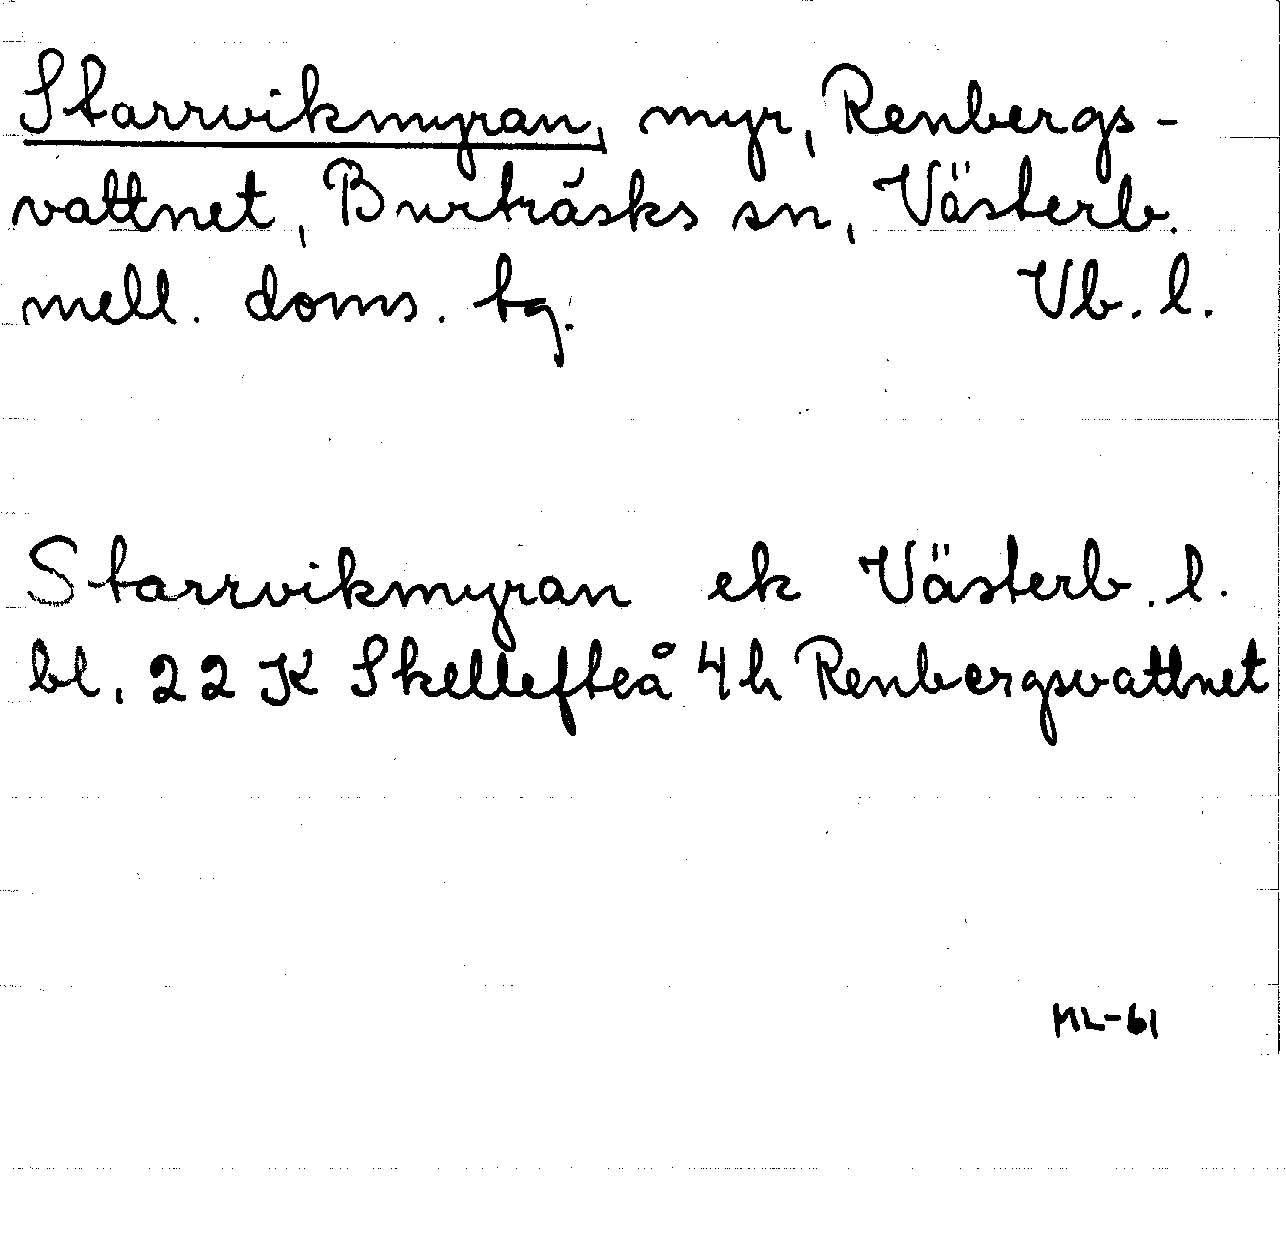 Starrvikmyran, myr, Renbergs-
vattnet, Burträsks sn, Västerb.
mell. doms. tg. Vb. l.
Starrvikmyran ek Västerb. l.
bl. 22 K Skellefteå 4h Renbergsvattnet
ML-61